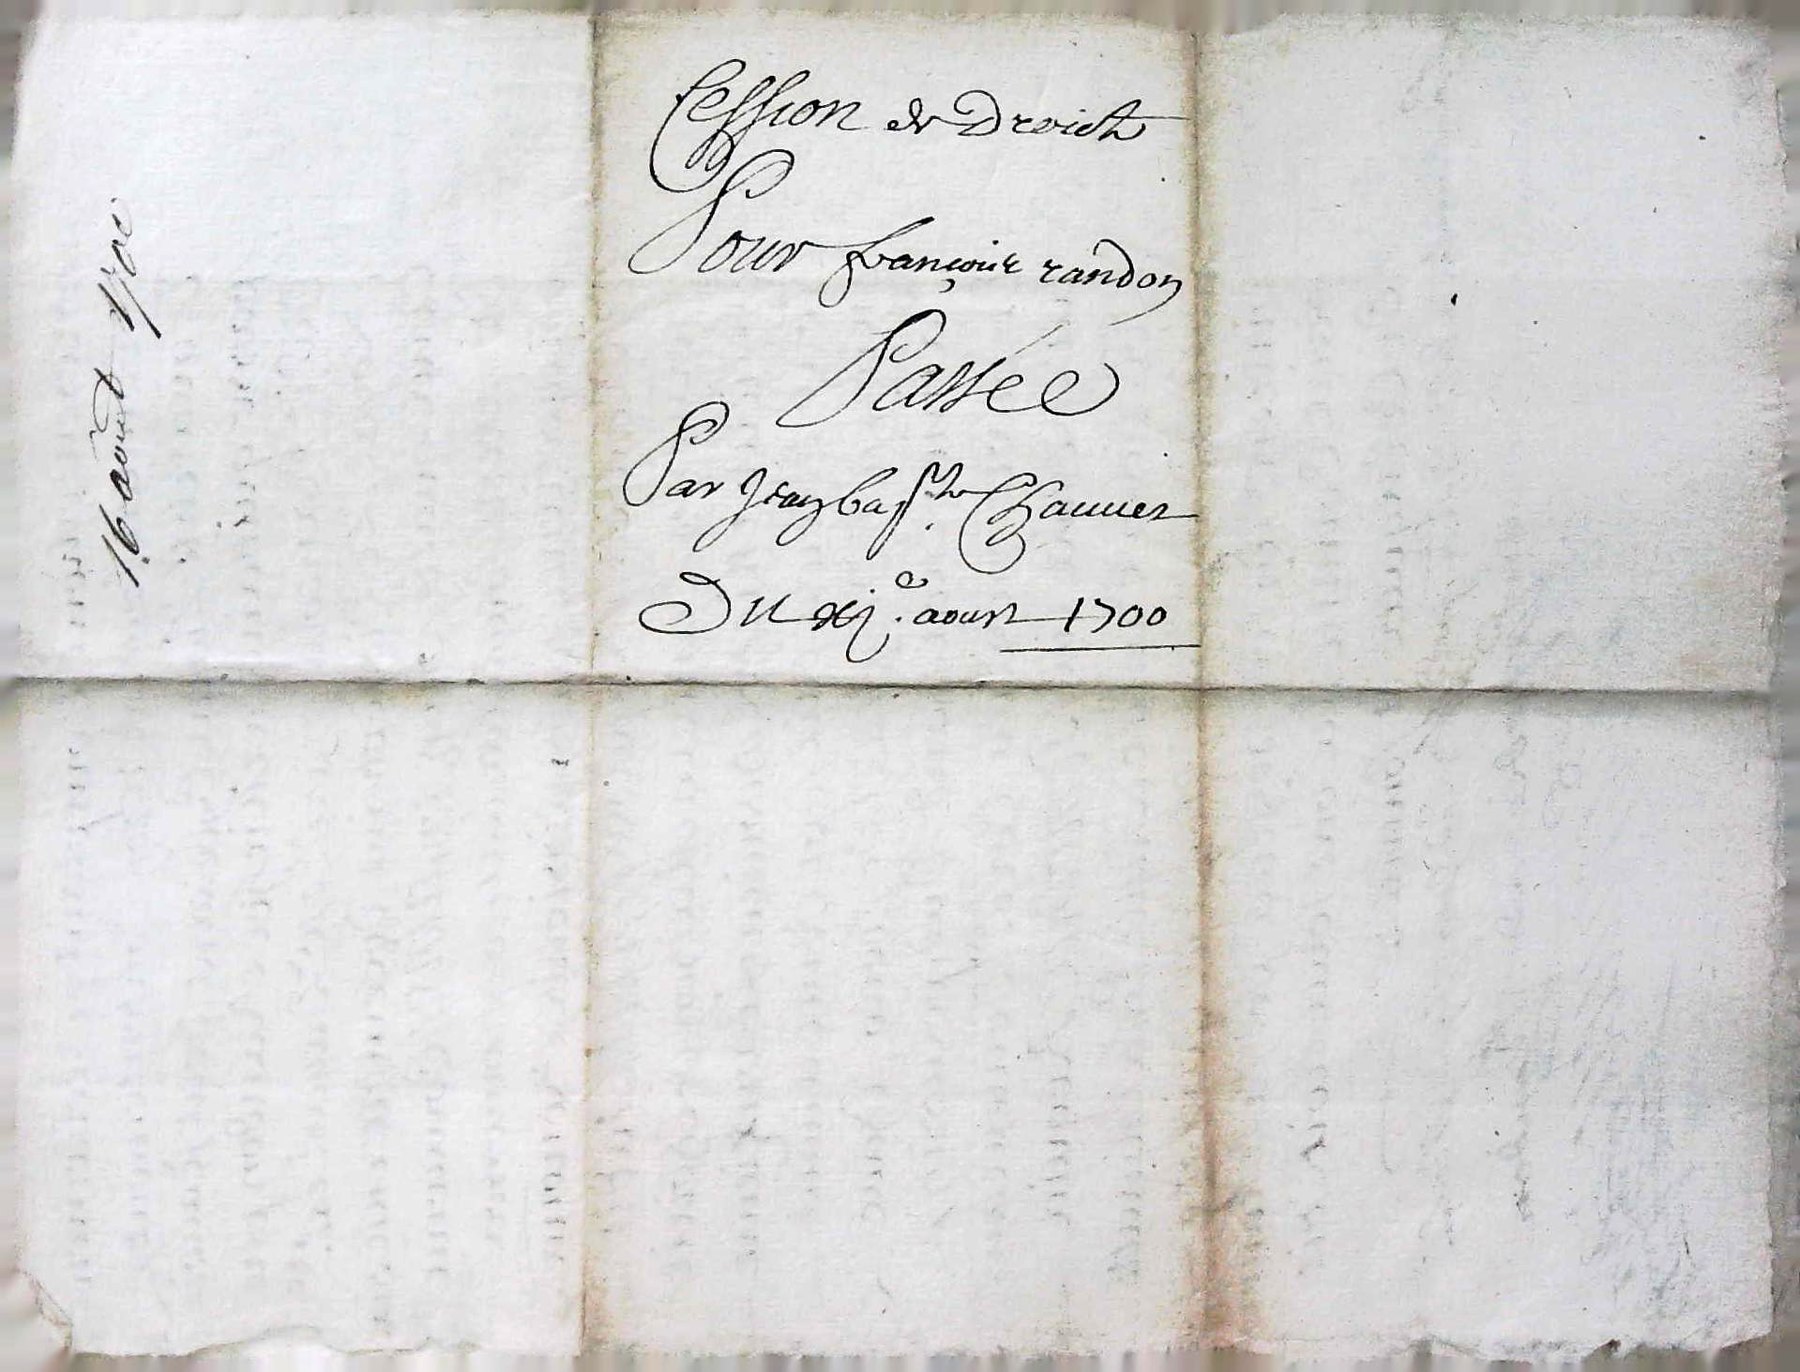 Cession de Droicts
Pour françois randon
Passée
Par Jean bap.te Chauuet
Du xj.e aoust 1700
16 aoust 1700